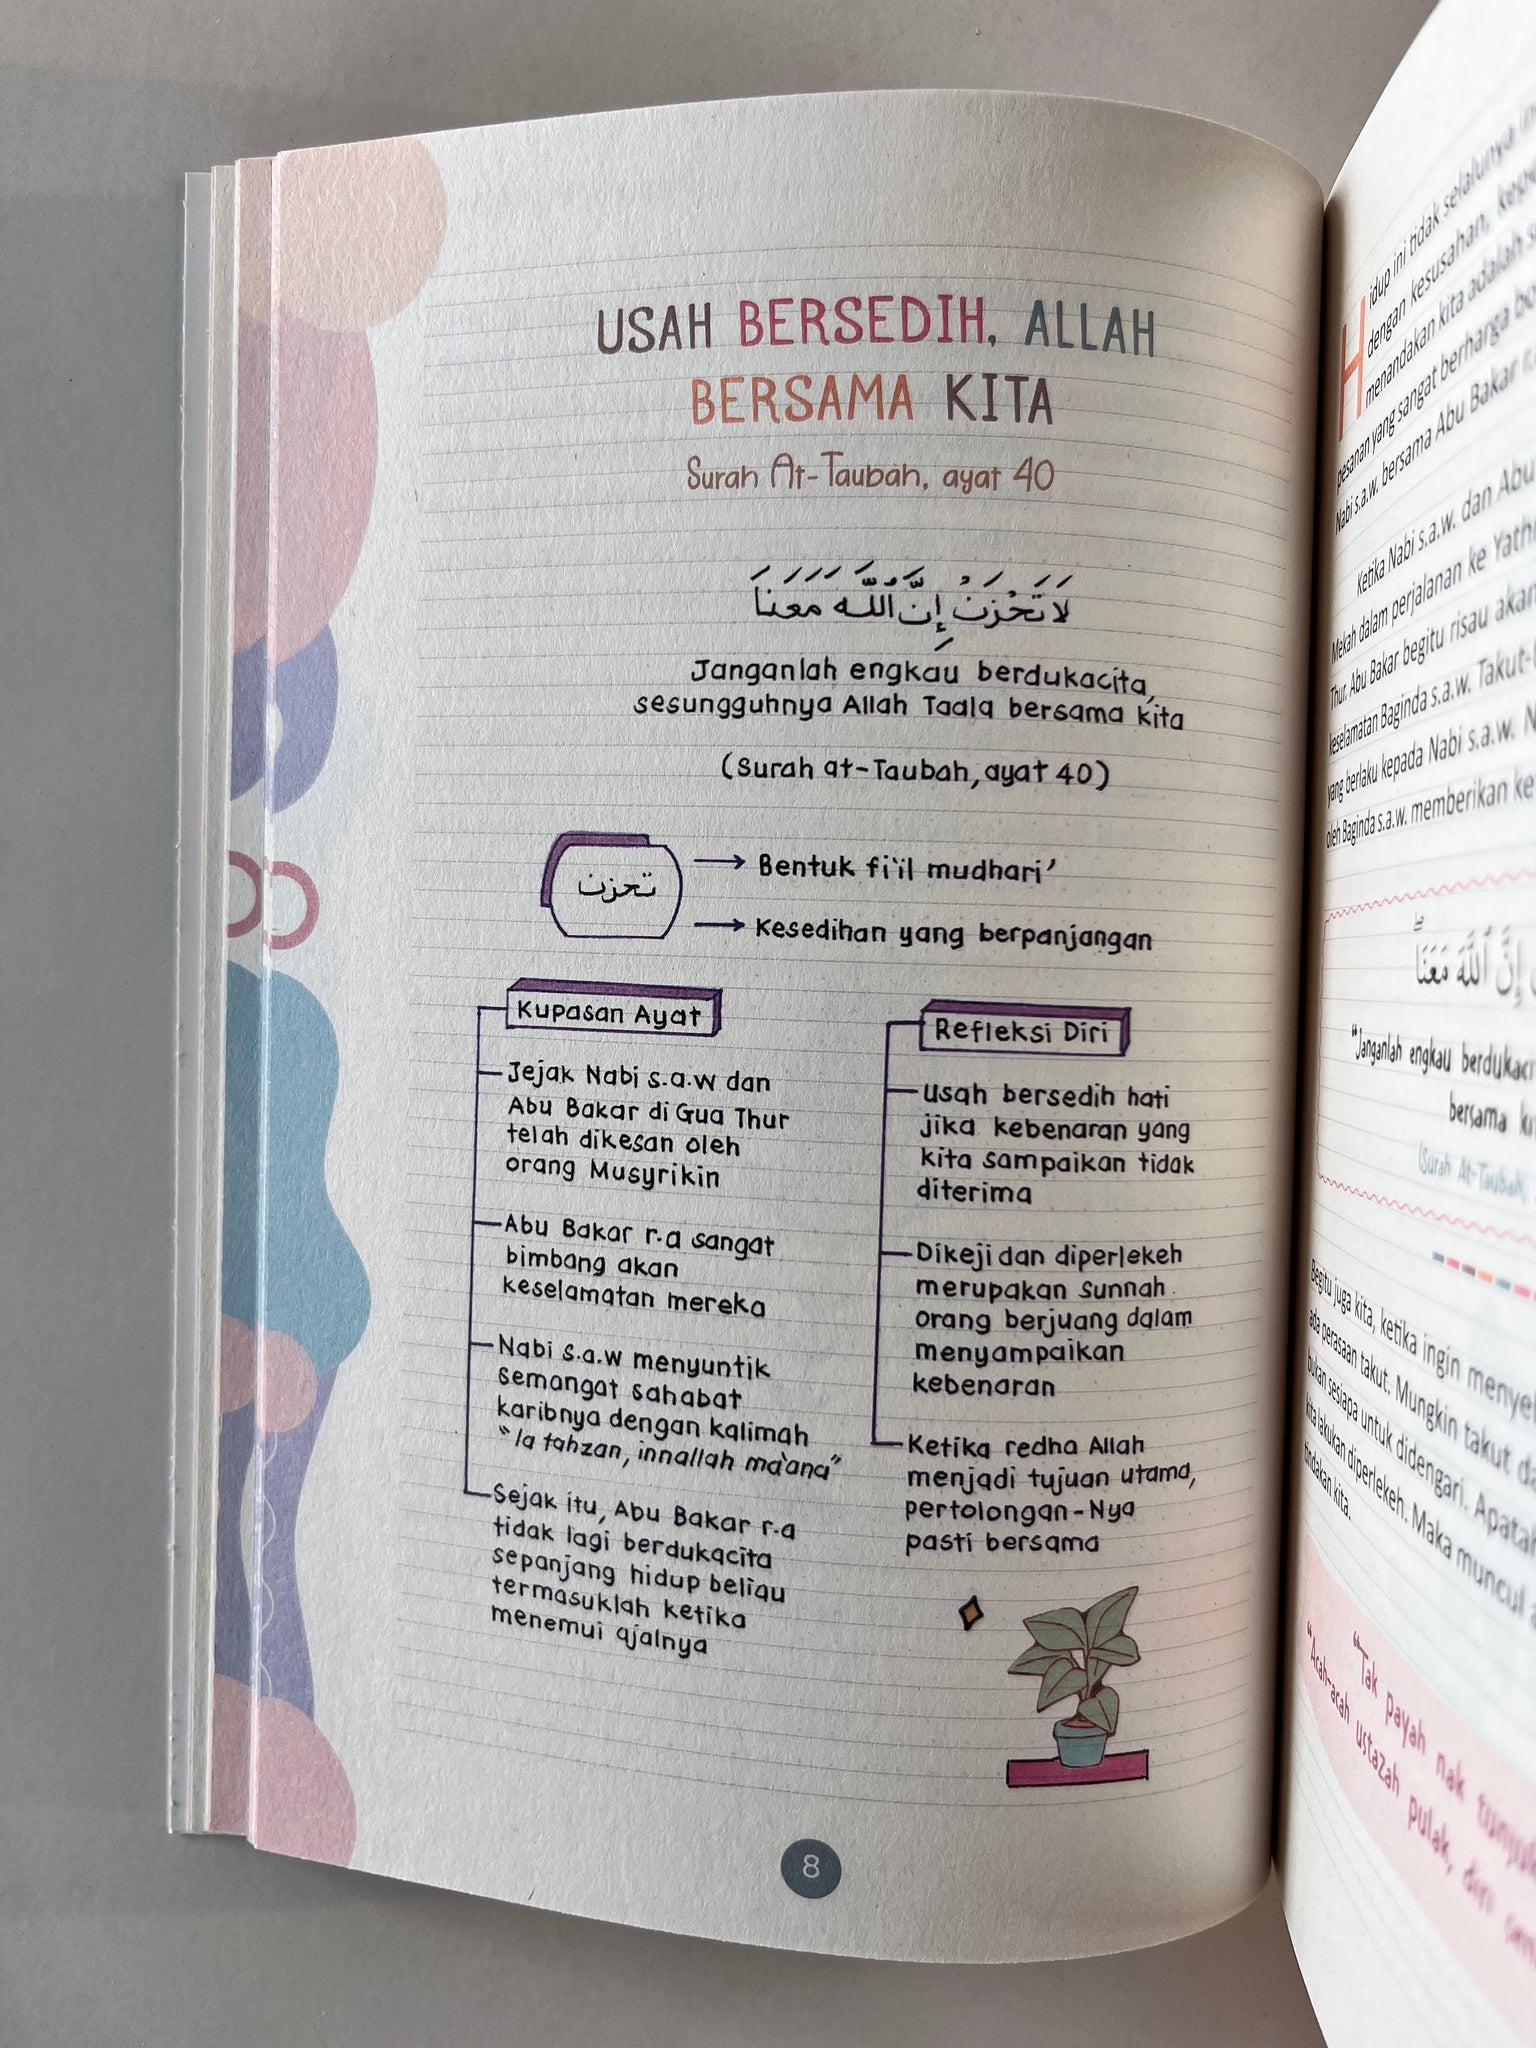 USAH BERSEDIH, ALLAH
BERSAMA KITA
Surah At-Taubah, ayat 40
لَا تَحْزَنْ إِنَّ اللَّهَ مَعَنَا
Janganlah engkau berdukacita,
sesungguhnya Allah Taala bersama kita
(Surah at-Taubah, ayat 40)
تحزن
→ Bentuk fi'il mudhari'
→ Kesedihan yang berpanjangan
Kupasan Ayat
Jejak Nabi s.a.w dan
Abu Bakar di Gua Thur
telah dikesan oleh
orang Musyrikin
Abu Bakar r.a sangat
bimbang akan
keselamatan mereka
Nabi s.a.w menyuntik
semangat sahabat
karibnya dengan kalimah
"la tahzan, innallah ma'ana"
Sejak itu, Abu Bakar r.a
tidak lagi berdukacita
sepanjang hidup beliau
termasuklah ketika
menemui ajalnya
Refleksi Diri
Usah bersedih hati
jika kebenaran yang
kita sampaikan tidak
diterima
Dikeji dan diperlekeh
merupakan sunnah
orang berjuang dalam
menyampaikan
kebenaran
Ketika redha Allah
menjadi tujuan utama,
pertolongan-Nya
pasti bersama
8
Hidup ini tidak selalunya
dengan kesusahan,
menandakan kita adalah
pesanan yang sangat berharga
Nabi s.a.w. bersama Abu Bakar
Ketika Nabi s.a.w. dan Abu
Mekah dalam perjalanan ke
Thur. Abu Bakar begitu risau akan
keselamatan Baginda s.a.w. Takut-
yang berlaku kepada Nabi s.a.w.
oleh Baginda s.a.w. memberikan
إِنَّ ٱللَّهَ مَعَنَا
"Janganlah engkau
bersama
(Surah At-Taubah,
Begitu juga kita, ketika ingin
ada perasaan takut. Mungkin takut
bukan sesiapa untuk didengari.
kita lakukan diperlekeh. Maka muncul
tindakan kita.
"Tak payah nak
"Acah-acah ustazah pulak,